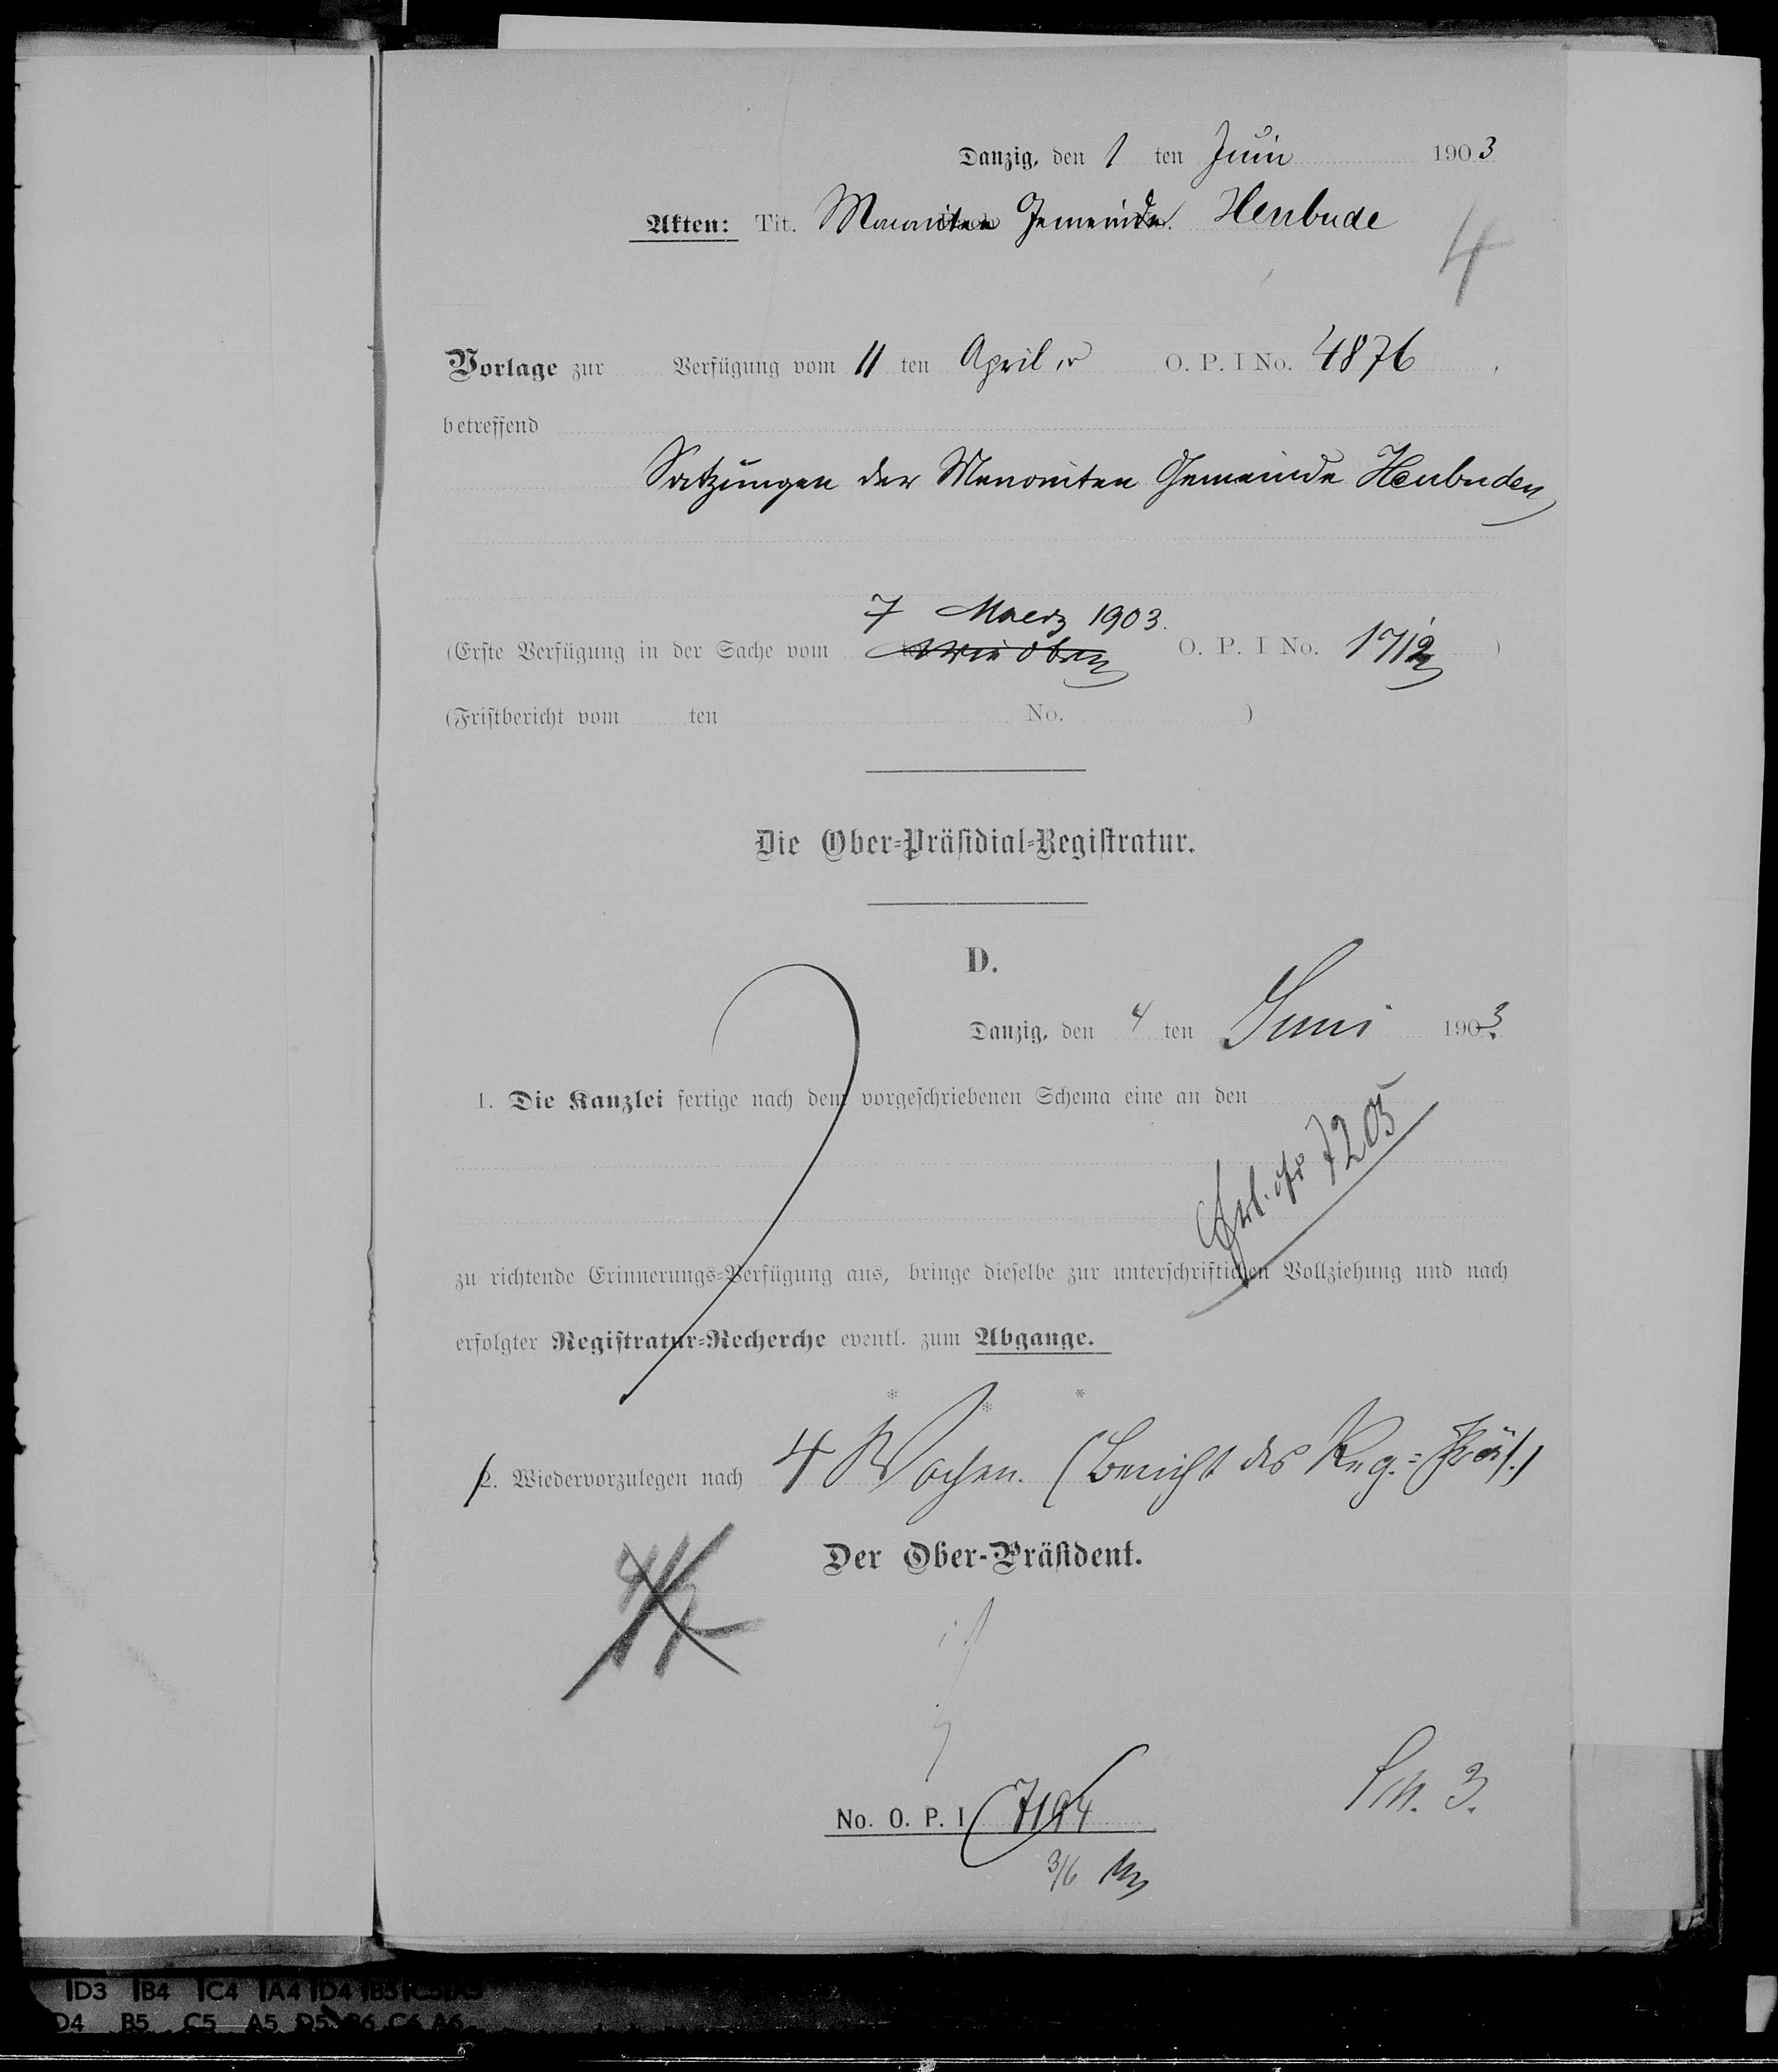 Danzig, den 1 ten Juni 1903
Akten: Tit. Menoniten Gemeinde Heubude
4
Vorlage zur Verfügung vom 11 ten April cr O. P. I No. 4876,
betreffend
Satzungen der Menoniten Gemeinde Heubuden
7 Maerz 1903.
(Erste Verfügung in der Sache vom ten wie oben O. P. I No. 1712)
(Fristbericht vom ten No. )
Die Ober=Präsidial=Registratur.
D.
Danzig, den 4 ten Juni 1903.
1. Die Kanzlei fertige nach dem vorgeschriebenen Schema eine an den
7205
zu richtende Erinnerungs=Verfügung aus, bringe dieselbe zur unterschriftlichen Vollziehung und nach
erfolgter Registratur=Recherche eventl. zum Abgange.
* * *
2. Wiedervorzulegen nach 4 Wochen. (Bericht des Reg.=Präs.)
Der Ober-Präsident.
No. O. P. I 7194
3/6
3.
D3 B4 C4 A4 D4 B5 C5 A5
D4 B5 C5 A5 D5 B6 C6 A6